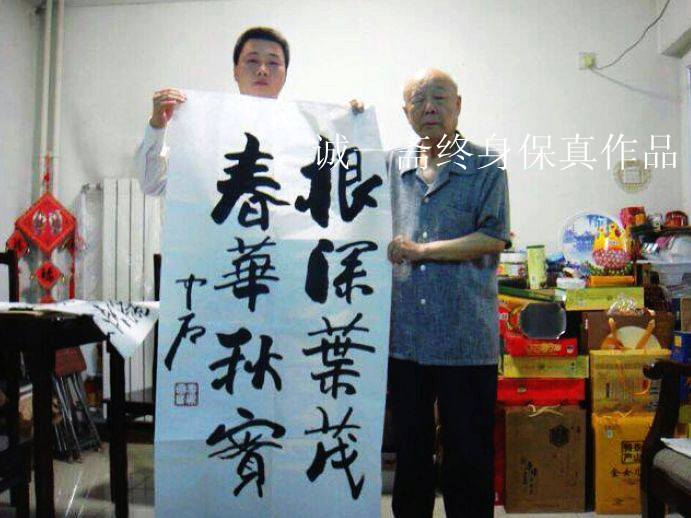 诚一斋终身保真作品
根深葉茂
春華秋實
中石